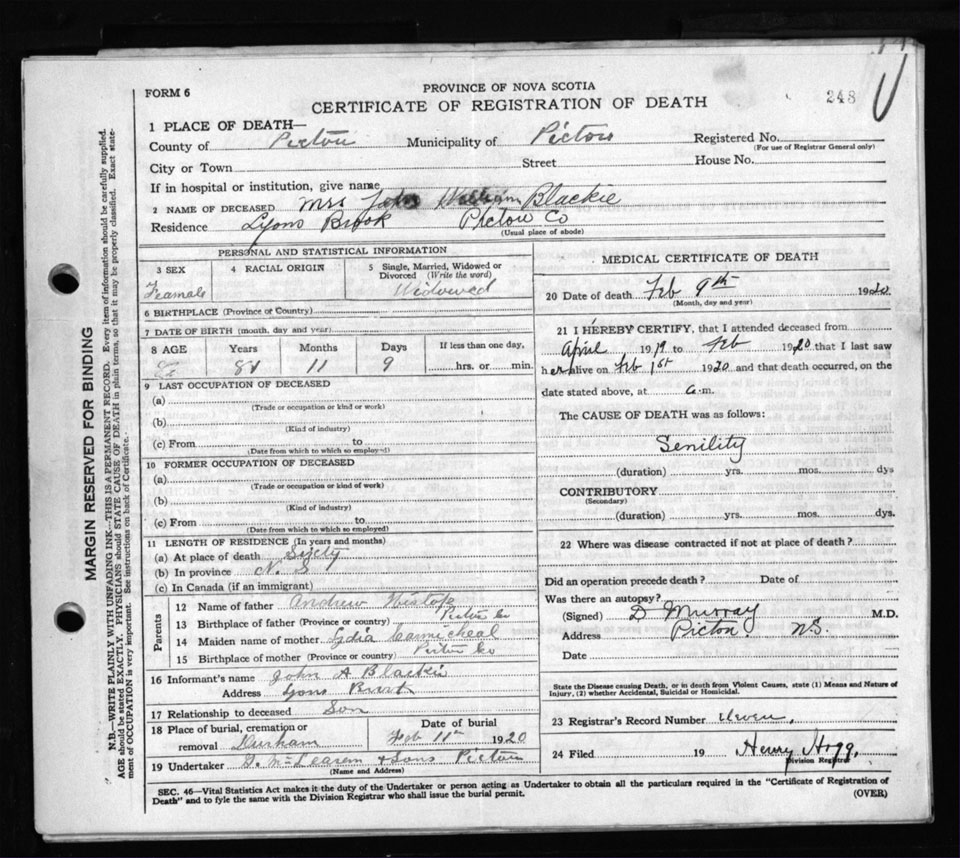 FORM 6
PROVINCE OF NOVA SCOTIA
CERTIFICATE OF REGISTRATION OF DEATH
248
1 PLACE OF DEATH—
County of Pictou Municipality of Pictou Registered No.
(For use of Registrar General only)
City or Town Street House No.
If in hospital or institution, give name
2 NAME OF DECEASED Mrs John William Blackie
Residence Lyons Brook Pictou Co
(Usual place of abode)
PERSONAL AND STATISTICAL INFORMATION
3 SEX 4 RACIAL ORIGIN 5 Single, Married, Widowed or Divorced (Write the word)
Feamale Widowed
6 BIRTHPLACE (Province or Country)
7 DATE OF BIRTH (month, day and year)
8 AGE Years Months Days If less than one day,
11 9 hrs. or min.
9 LAST OCCUPATION OF DECEASED
(a)
(Trade or occupation or kind or work)
(b)
(Kind of industry)
(c) From to
(Date from which to which so employed)
10 FORMER OCCUPATION OF DECEASED
(a)
(Trade or occupation or kind of work)
(b)
(Kind of industry)
(c) From to
(Date from which to which so employed)
11 LENGTH OF RESIDENCE (In years and months)
(a) At place of death Sixty
(b) In province N. S
(c) In Canada (if an immigrant)
Parents
12 Name of father Andrew
13 Birthplace of father (Province or country) Pictou Co
14 Maiden name of mother Lydia Carmicheal
15 Birthplace of mother (Province or country) Pictou Co
16 Informant's name John A Blackie
Address Lyons
17 Relationship to deceased Son
18 Place of burial, cremation or removal Durham
Date of burial
Feb 11th 1920
19 Undertaker & Sons Pictou
(Name and Address)
MEDICAL CERTIFICATE OF DEATH
20 Date of death Feb 9th 1920
(Month, day and year)
21 I HEREBY CERTIFY, that I attended deceased from
April 1919 to Feb 1920 that I last saw
her alive on Feb 1st 1920 and that death occurred, on the
date stated above, at a.m.
The CAUSE OF DEATH was as follows:
Senility
(duration) yrs. mos. dys
CONTRIBUTORY
(Secondary)
(duration) yrs. mos. dys.
22 Where was disease contracted if not at place of death?
Did an operation precede death? Date of
Was there an autopsy?
(Signed) D Murray M.D.
Address Picton N.S.
Date
State the Disease causing Death, or in death from Violent Causes, state (1) Means and Nature of
Injury, (2) whether Accidental, Suicidal or Homicidal.
23 Registrar's Record Number
24 Filed 19 Henry Hogg,
Division Registrar
SEC. 46—Vital Statistics Act makes it the duty of the Undertaker or person acting as Undertaker to obtain all the particulars required in the "Certificate of Registration of
Death" and to fyle the same with the Division Registrar who shall issue the burial permit.
(OVER)
MARGIN RESERVED FOR BINDING
N.B.—WRITE PLAINLY WITH UNFADING INK—THIS IS A PERMANENT RECORD. Every item of information should be carefully supplied.
AGE should be stated EXACTLY. PHYSICIANS should STATE CAUSE OF DEATH in plain terms, so that it may be properly classified. Exact state-
ment of OCCUPATION is very important. See instructions on back of Certificate.